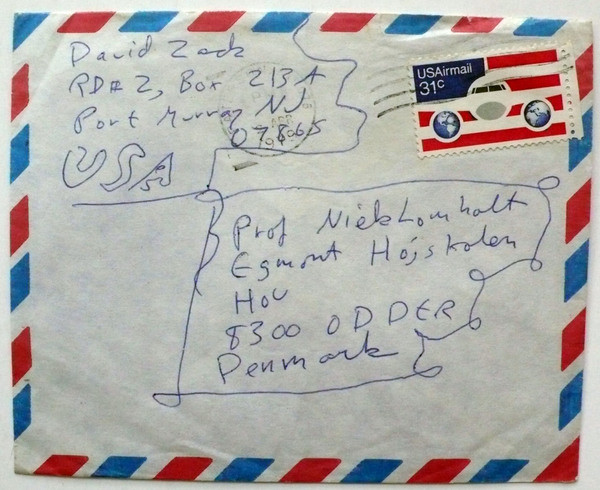 David Zack
RD# 2, Box 213A
Port Murray NJ
07865
USA
USAirmail
31c
APR
Prof Niels Lomholt
Egmont Højskolen
HOU
8300 ODDER
Denmark